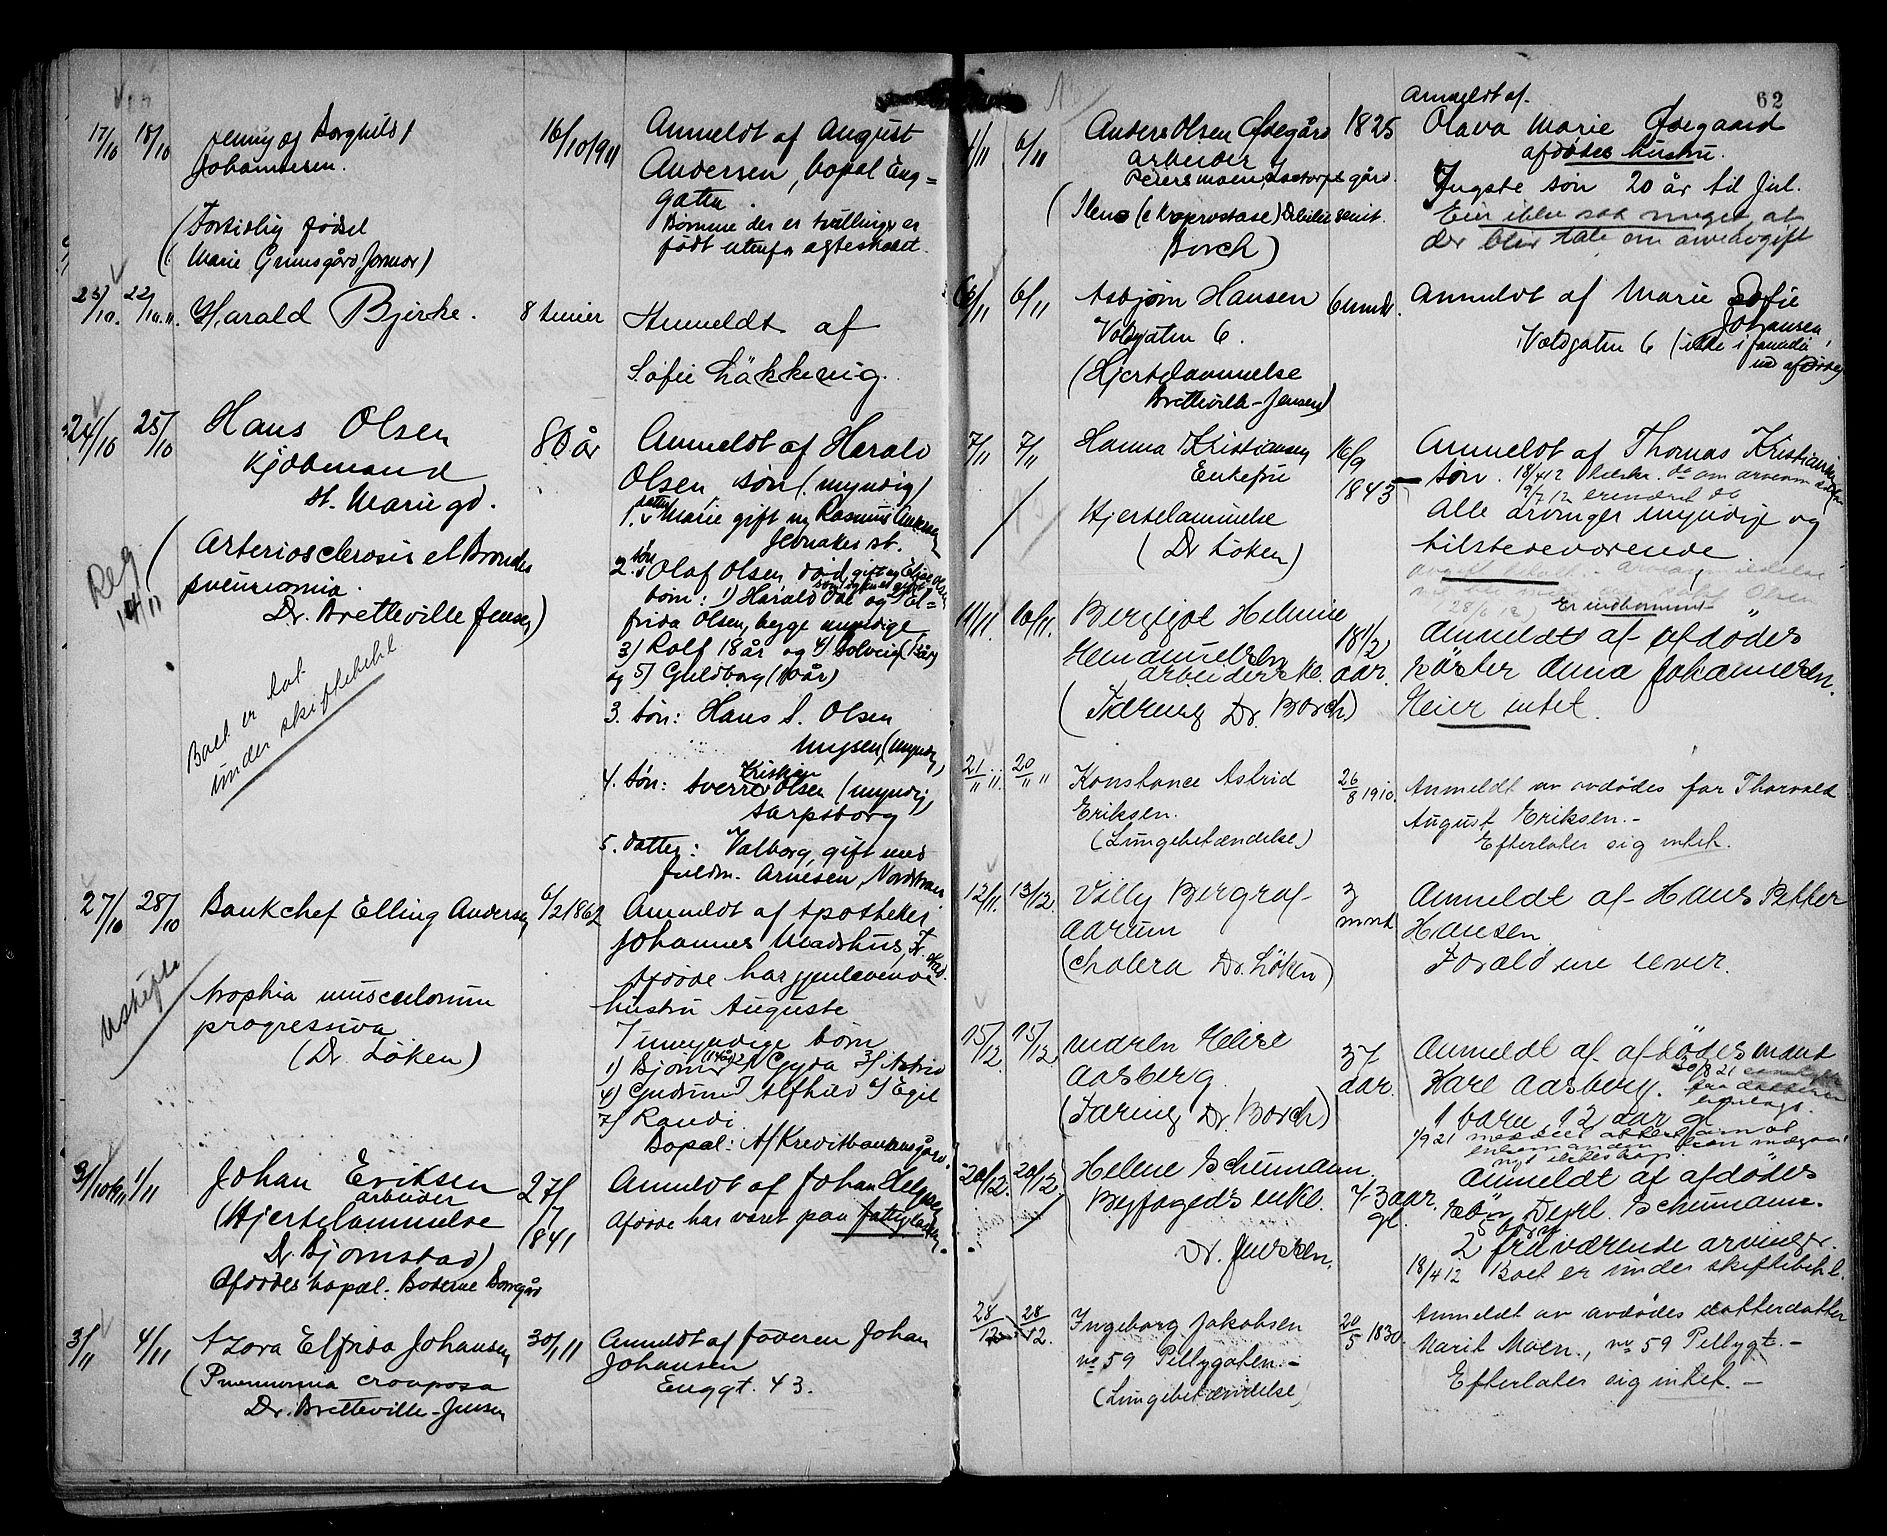 17/10 18/10 Jenny og Borghild
Johannesen.
(Fortidlig fødsel
Marie Grimsgård Jormor)
16/10 1911
Anmeldt af August
Andersen, bopæl Eng=
gaten.
Børnene der er tvillinger er
født utenfor ægteskabet.
22/10.11. Harald Bjerke.
8 timer
Anmeldt af
Sofie Läkkevig.
24/10 25/10 Hans Olsen
Kjøbmand
St. Marie gd.
(Arteriosclerosis et Broncho
pneumonia.
Dr. Bretteville Jensen)
Reg 14/11
Boet er tat
under skiftebehl
80 år
Anmeldt af Harald
Olsen søn (myndig)
1. datter Marie gift m Rasmus Andersen
Jevnaker st.
2. søn Olaf Olsen død, gift m Elise Olsen
børn: 1) Harald Oal og 2) El=
frida Olsen, begge myndige
3) Rolf 18 år og 4) Solveig
og 5) Guldborg (10 år)
3. Søn: Hans S. Olsen
Mysen (myndig)
4. Søn: Sverre Kristian Olsen (myndig)
Sarpsborg
5. Datter: Valborg, gift med
fuldm. Arnesen, Nordstrand
27/10 28/10 Bankchef Elling Andersen
Atrophia musculorum
progressiva
(Dr. Löken)
Uskifte
6/2 1862
Anmeldt af Apotheker
Johannes Madshus, Fr.stad.
Afdøde har gjenlevende
hustru Auguste
7 umyndige børn
1) Bjørn (14 år) 2) Gyda 3) Astrid
4) Gudrun 5) Alfhild 6) Egil
7) Randi.
Bopæl: Af Kreditbankensgård.
31/10 1/11 Johan Eriksen
arbeider
(Hjertelammelse
Dr Bjørnstad)
Afdødes bopæl: Boderne Borregård
27/7 1841
Anmeldt af Johan Helgesen
Afdøde har været paa fattigkassen.
3/11 4/11 Azora Elfrida Johansen
(Pneumonia crouposa
Dr. Bretteville-Jensen
30/1 11
Anmeldt af faderen Johan
Johansen
Enggt. 43.
62
4/11 6/11 Anders Olsen Ødegård
arbeider
Peiersmoen,
(Ileus (e Koprostase) Debilit. senil.
Borch)
1825
Anmeldt af
Olava Marie Ødegaard
afdødes hustru.
Yngste søn 20 år til Jul.
Eier ikke saa meget at
der blir tale om arveavgift
6/11 6/11 Asbjørn Hansen
Voldgaten 6.
(Hjertelammelse
Bretteville-Jensen)
6 mndr.
Anmeldt af Marie Sofie
Johansen
Voldgaten 6 (ikke i familie
med afdøde)
7/11 7/11 Hanna Kristiansen
Enkefru
Hjertelammelse
(Dr Löken)
16/9
1843
Anmeldt af Thomas Kristiansen
søn. 18/4 12
9/7 12 erindret do
Alle arvinger myndige og
tilstedeværende.
Er indkommet
11/11. 10/11. Bergljot Helmine
Hemanuelsen
arbeiderske.
(Tæring Dr. Borch)
18 1/2
aar.
Anmeldt af afdødes
søster Anna Johannesen.
Eier intet.
21/11 11 20/11 11 Konstance Astrid
Eriksen.
(Lungebetændelse)
26/8 1910.
Anmeldt av avdødes far Thorvald
August Eriksen.-
Efterlater sig intet.
12/11. 13/12. Villy Bergraf
Aarum
(Cholera Dr. Löken)
3
mnd
Anmeldt af Hans Petter
Hansen
Forældrene lever.
15/12. 15/12. Maren Helise
Aasberg.
(Tæring Dr. Borch)
37
aar.
Anmeldt af afdødes mand
Karl Aasberg.
1 barn 12 aar gl.
20/12. 20/12. Helene Schumann
Byfogeds enke.
Dr. Jensen.
73 aar.
gl.
Anmeldt af afdødes
søn Dyrl. Schumann.
5 børn
2 fraværende arvinger.
18/4 12 Boet er under skiftebehl.
28/12 28/12. Ingeborg Jakobsen
no 59 Pellygaten.-
(Lungebetændelse)
20/5 1830.
Anmeldt av avdødes datterdatter
Marit Moen., no 59 Pellygt.-
Efterlater sig intet.-